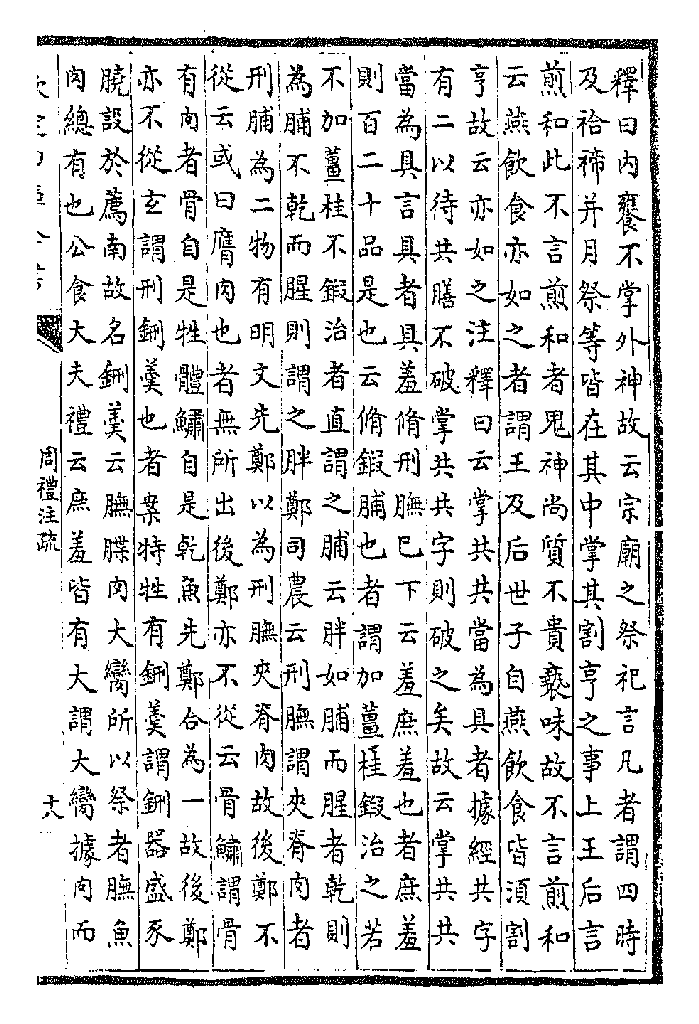 釋曰内饔不掌外神故云宗廟之祭祀言凡者謂四時
及祫禘并月祭等皆在其中掌其割亨之事上王后言
煎和此不言煎和者鬼神尚質不貴褻味故不言煎和
云燕飲食亦如之者謂王及后世子自燕飲食皆須割
亨故云亦如之注釋曰云掌共共當為具者據經共字
有二以待共膳不破掌共共字則破之矣故云掌共共
當為具言具者具羞脩刑膴已下云羞庶羞也者庶羞
則百二十品是也云脩鍜脯也者謂加薑桂鍜治之若
不加薑桂不鍜治者直謂之脯云胖如脯而腥者乾則
為脯不乾而腥則謂之胖鄭司農云刑膴謂夾脊肉者
刑脯為二物有明文先鄭以為刑膴夾脊肉故後鄭不
從云或曰膺肉也者無所出後鄭亦不從云骨鱐謂骨
有肉者骨自是牲體鱐自是乾魚先鄭合為一故後鄭
亦不從玄謂刑鉶羮也者案特牲有鉶羮謂鉶器盛豕
膮設於薦南故名鉶羮云膴䐑肉大臠所以祭者膴魚
肉總有也公食大夫禮云庶羞皆有大謂大臠據肉而
周禮注疏
十八